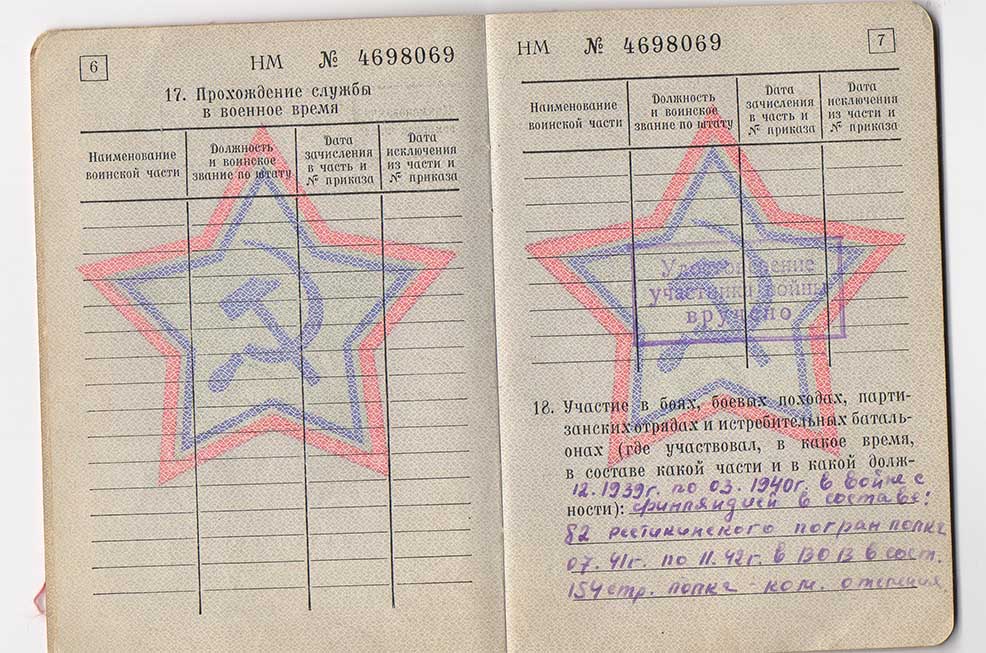 6
НМ № 4698069
17. Прохождение службы
в военное время
Наименование воинской части
Должность и воинское звание по штату
Дата зачисления в часть и № приказа
Дата исключения из части и № приказа
НМ № 4698069
7
Наименование воинской части
Должность и воинское звание по штату
Дата зачисления в часть и № приказа
Дата исключения из части и № приказа
Удостоверение
участника войны
вручено
18. Участие в боях, боевых походах, парти-
занских отрядах и истребительных баталь-
онах (где участвовал, в какое время,
в составе какой части и в какой долж-
12.1939г. по 03.1940г. в войне с
ности): финляндией в составе:
82 рестикинского погран полка
07.41г. по 11.42г. в ВОВ в сост.
154 стр. полка - ком. отделения